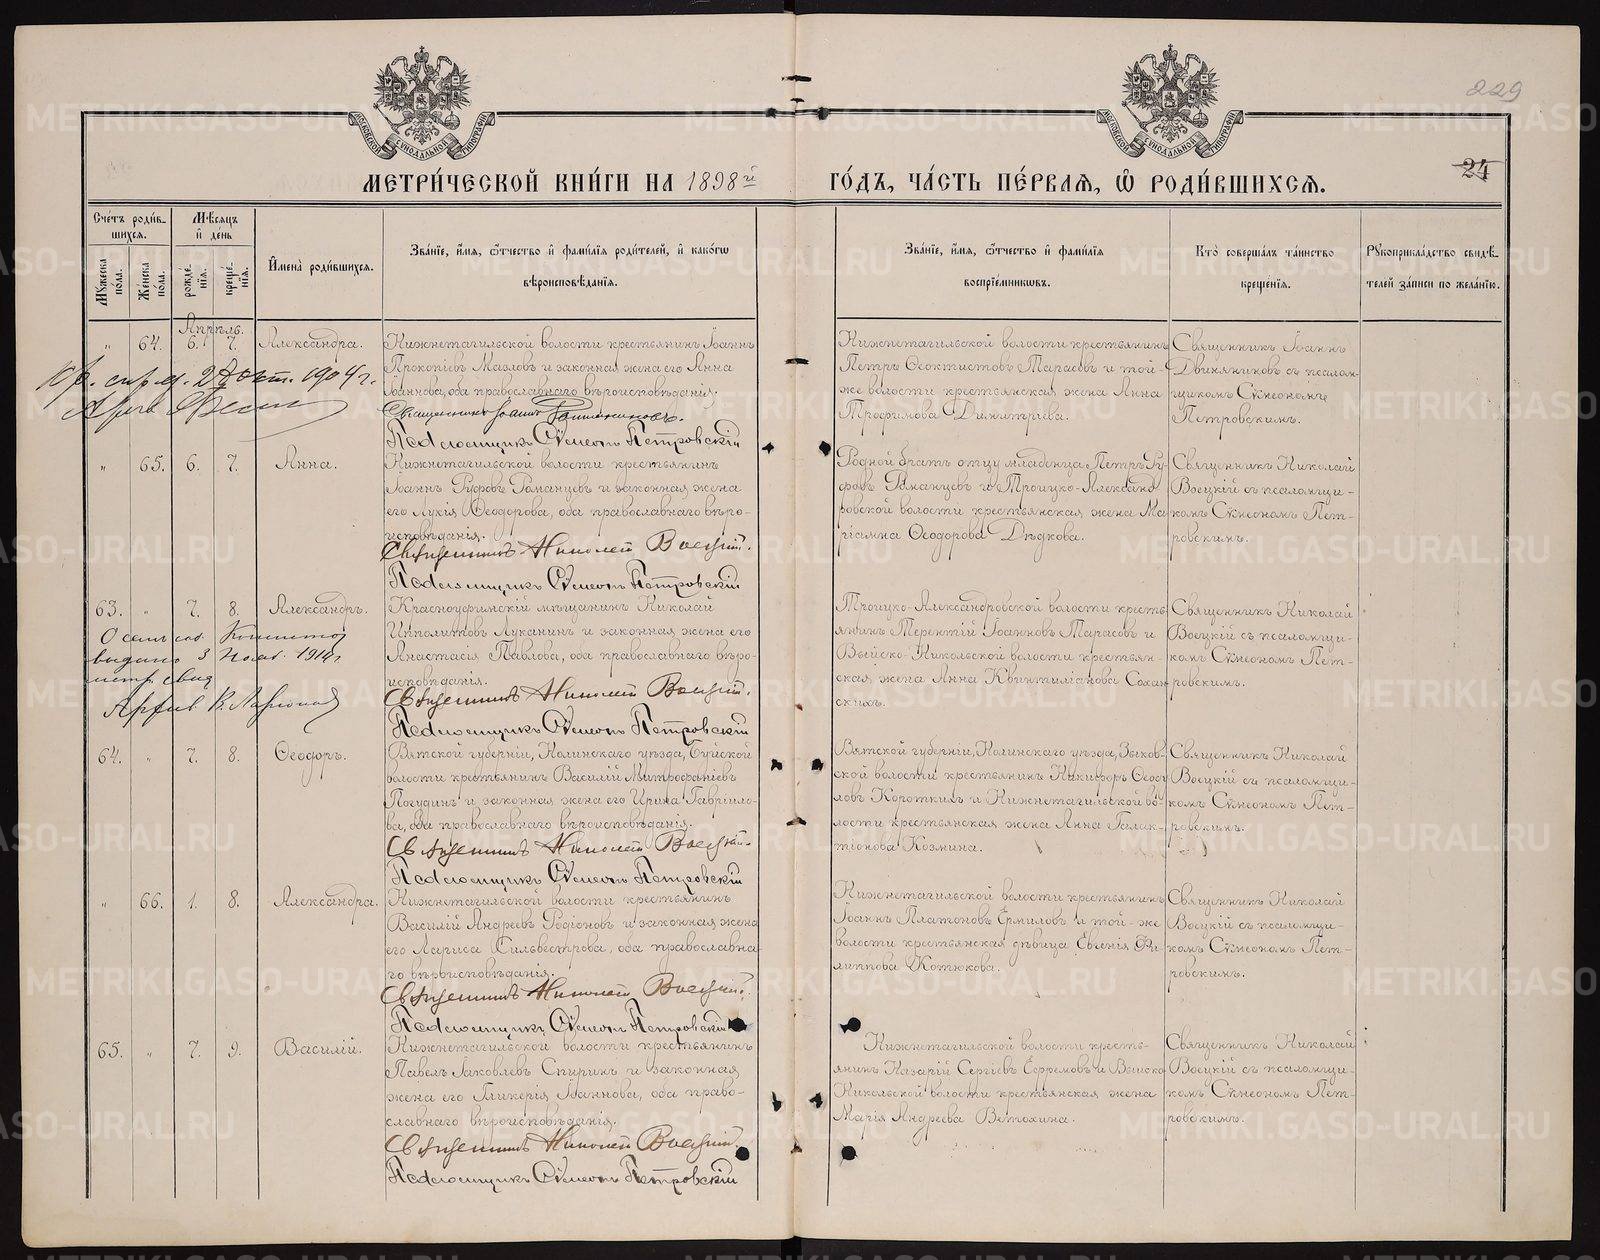 229
24
МОСКОВСКОЙ СѴНОДАЛЬНОЙ ТИПОГРАФІИ
МОСКОВСКОЙ СѴНОДАЛЬНОЙ ТИПОГРАФІИ
МЕТРИ́ЧЕСКОЙ КНИ́ГИ НА 1898й ГО́ДЪ, ЧА́СТЬ ПЕ́РВАЯ, Ѿ РОДИ́ВШИХСЯ.
Сче́тъ роди́вшихся.
Му́жеска по́ла.
Же́нска по́ла.
Мѣ́сяцъ и҆ де́нь
рожде́нїя.
креще́нїя.
И҆мена̀ роди́вшихся.
Зва́нїе, и҆́мя, ѻ҆́тчество и҆ фами́лїя роди́телей, и҆ како́гѡ
вѣроисповѣ́данїя.
Зва́нїе, и҆́мя, ѻ҆́тчество и҆ фами́лїя
воспрїе́мникѡвъ.
Кто̀ соверша́лъ та́инство
креще́нїя.
Рꙋкоприкла́дство свидѣ́-
телей за́писи по жела́нїю.
Апрѣль.
" 64. 6. 7. Александра.
Нижнетагильской волости крестьянинъ Іоаннъ
Прокопіевъ Мазловъ и законная жена его Анна
Іоаннова, оба православнаго вѣроисповѣданія.
Священникъ Іоаннъ
Псаломщикъ Сѵмеонъ Петровскій
Нижнетагильской волости крестьянинъ
Петръ Ѳеоктистовъ Тарасовъ и той-
же волости крестьянская жена Анна
Трофимова Димитріева.
Священникъ Іоаннъ
Двиняниковъ съ псалом-
щикомъ Сѵмеономъ
Петровскимъ.
окт. 1904 г.
" 65. 6. 7. Анна.
Нижнетагильской волости крестьянинъ
Іоаннъ Руфовъ Романцевъ и законная жена
его Лукія Ѳеодорова, оба православнаго вѣро-
исповѣданія.
Священникъ Николай Воецкій.
Псаломщикъ Сѵмеонъ Петровскій
Родной братъ отцу младенца Петръ Ру-
фовъ Романцевъ и Троицко-Александ-
ровской волости крестьянская жена Ма-
ріамна Ѳеодорова Дѣдкова.
Священникъ Николай
Воецкій съ псаломщи-
комъ Сѵмеономъ Пет-
ровскимъ.
63. " 7. 8. Александръ.
Красноуфимскій мѣщанинъ Николай
Ипполитовъ Луканинъ и законная жена его
Анастасія Павлова, оба православнаго вѣро-
исповѣданія.
Священникъ Николай Воецкій.
Псаломщикъ Сѵмеонъ Петровскій
Троицко-Александровской волости кресть-
янинъ Терентій Іоанновъ Тарасовъ и
Выйско-Никольской волости крестьян-
ская жена Анна Квинтиліанова Сохан-
скихъ.
Священникъ Николай
Воецкій съ псаломщи-
комъ Сѵмеономъ Пет-
ровскимъ.
О семъ
выдано 3 1914 г
метр. свид
64. " 7. 8. Ѳеодоръ.
Вятской губерніи, Нолинскаго уѣзда, Буйской
волости крестьянинъ Василій Митрофаніевъ
Погудинъ и законная жена его Ирина Гавріило-
ва, оба православнаго вѣроисповѣданія.
Священникъ Николай Воецкій.
Псаломщикъ Сѵмеонъ Петровскій
Вятской губерніи, Нолинскаго уѣзда, Зыков-
ской волости крестьянинъ Никифоръ Ѳеоѳи-
ловъ Короткихъ и Нижнетагильской во-
лости крестьянская жена Анна Галак-
тіонова Козмина.
Священникъ Николай
Воецкій съ псаломщи-
комъ Сѵмеономъ Пет-
ровскимъ.
" 66. 1. 8. Александра.
Нижнетагильской волости крестьянинъ
Василій Андреевъ Родіоновъ и законная жена
его Лариса Сильвестрова, оба православна-
го вѣроисповѣданія.
Священникъ Николай Воецкій.
Псаломщикъ Сѵмеонъ Петровскій
Нижнетагильской волости крестьянинъ
Іоаннъ Платоновъ Ермиловъ и той-же
волости крестьянская дѣвица Евгенія Фи-
липпова Котюкова.
Священникъ Николай
Воецкій съ псаломщи-
комъ Сѵмеономъ Пет-
ровскимъ.
65. " 7. 9. Василій.
Нижнетагильской волости крестьянинъ
Павелъ Іаковлевъ Спиринъ и законная
жена его Гликерія Іоаннова, оба право-
славнаго вѣроисповѣданія.
Священникъ Николай Воецкій
Псаломщикъ Сѵмеонъ Петровскій
Нижнетагильской волости кресть-
янинъ Назарій Сергіевъ Ефремовъ и Выйско-
Никольской волости крестьянская жена
Марія Андреева Ветохина.
Священникъ Николай
Воецкій съ псаломщи-
комъ Сѵмеономъ Пет-
ровскимъ.
METRIKI.GASO-URAL.RU